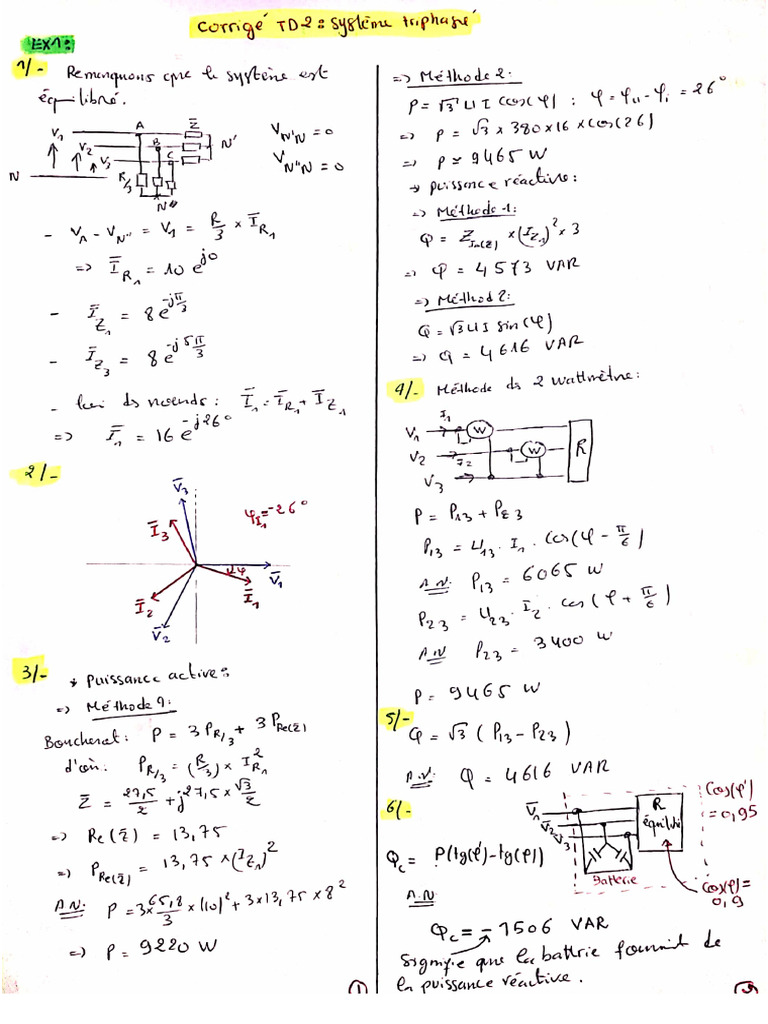 Corrigé TD2 : Système triphasé
EX1:
1/- Remarquons que le système est
équilibré.
V1
A
Z̄
V2
B
N'
V3
C
N
R/3
N''
V_N'N = 0
V_N''N = 0
- V1 - V_N'' = V1 = R/3 × Ī_R1
=> Ī_R1 = 10 e^j0
- Ī_Z1 = 8 e^-jπ/3
- Ī_Z3 = 8 e^-j5π/3
- Loi ds noeuds : Ī1 = Ī_R1 + Ī_Z1
=> Ī1 = 16 e^-j26°
2/-
V̄3
Ī3
φ_I1 = -26°
φ
V̄1
Ī1
Ī2
V̄2
3/- * Puissance active :
=> Méthode 1:
Boucherot : P = 3P_R/3 + 3P_Re(z̄)
d'où : P_R/3 = (R/3) × I_R1²
Z̄ = 27,5/2 + j27,5 × √3/2
=> Re(z̄) = 13,75
=> P_Re(z̄) = 13,75 × (I_Z1)²
A.N: P = 3 × 65,8/3 × (10)² + 3 × 13,75 × 8²
=> P = 9220 W
1
=> Méthode 2:
P = √3 U I cos(φ) : φ = φu - φi = 26°
=> P = √3 × 380 × 16 × cos(26)
=> P ≃ 9465 W
→ puissance réactive :
=> Méthode 1:
Q = Z_Im(z̄) × (I_Z1)² × 3
=> Q = 4573 VAR
=> Méthod 2:
Q = √3 U I sin(φ)
=> Q = 4616 VAR
4/- Méthode ds 2 wattmètre :
I1
V1
W
V2
I2
W
R
V3
P = P13 + P23
P13 = U13 . I1 . cos(φ - π/6)
A.N: P13 = 6065 W
P23 = U23 . I2 . cos(φ + π/6)
A.N P23 = 3400 W
P = 9465 W
5/- Q = √3 (P13 - P23)
A.N: Q = 4616 VAR
6/-
V̄1
V̄2
V̄3
R
équilibré
Batterie
Cos(φ')
= 0,95
Cos(φ) =
0,9
Qc = P(tg(φ') - tg(φ))
A.N
Qc = - 1506 VAR
Signifie que la battrie fournit de
la puissance réactive.